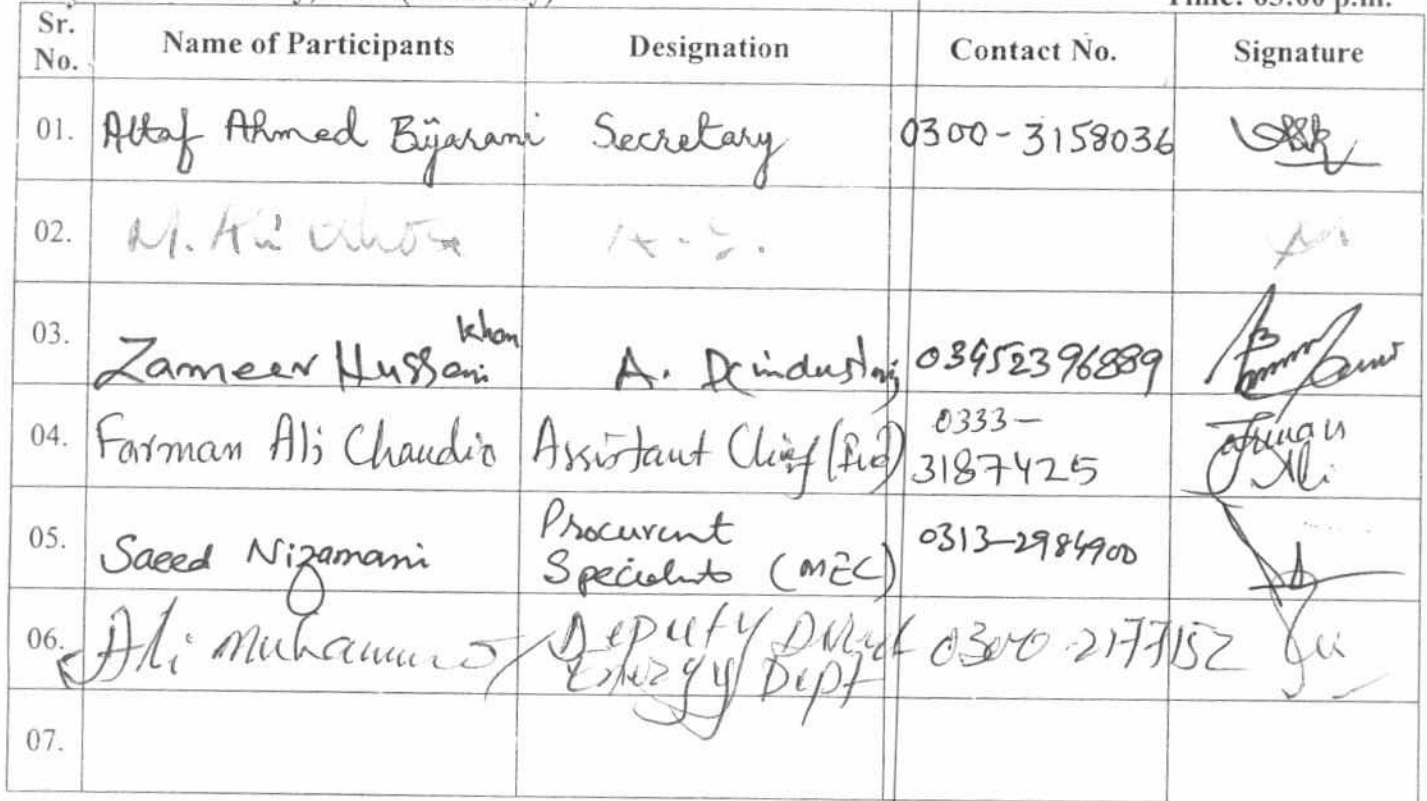 Time: 03:00 p.m.
Sr. No. Name of Participants Designation Contact No. Signature
01. Altaf Ahmed Bijarani Secretary 0300-3158036
02. M. Ali
03. Zameer Hussain Khan A. D industries 03952396889
04. Farman Ali Chandio Assistant Chief 0333-3187425 Farman Ali
05. Saeed Nizamani Procurent Specialists (MEC) 0313-2984900
06. Ali Muhammad Deputy Direct Energy Dept 0300-2177152
07.